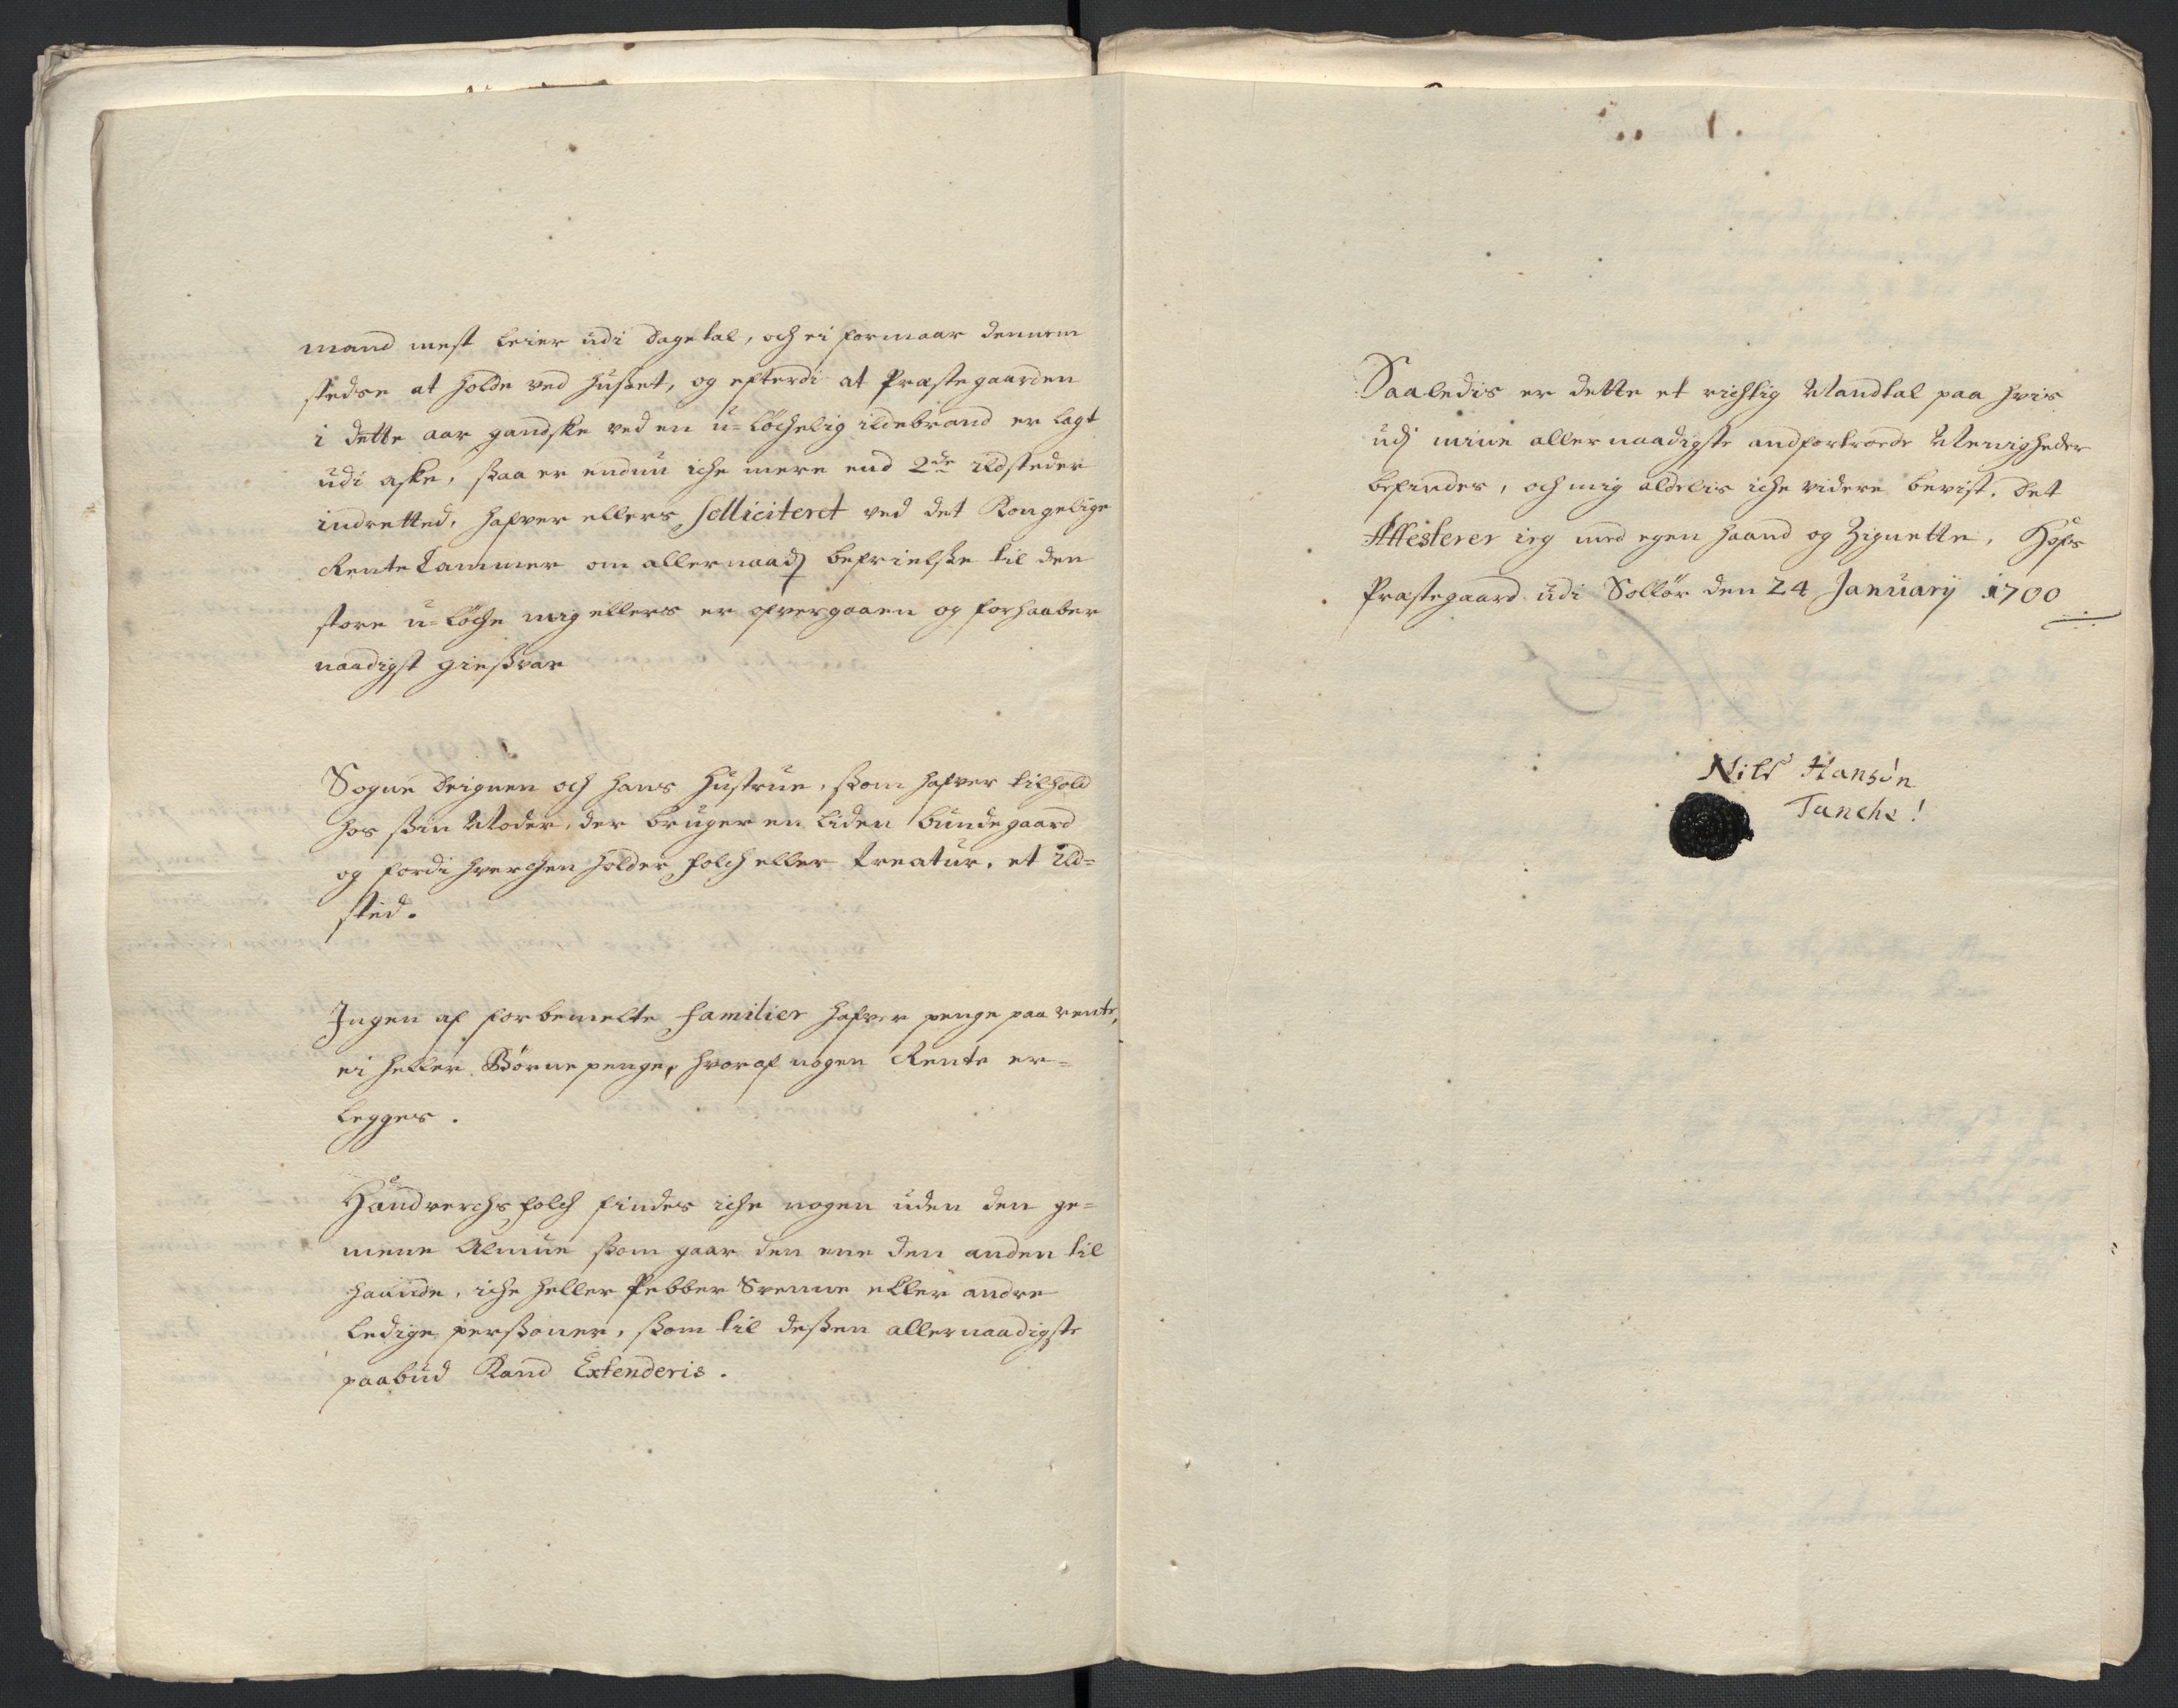 mand mest leier udi dagetal, och ei formaar dennem
stedse at holde ved hußet, og efterdi at Præstegaarden
i dette aar gandske ved en u-løchelig ildebrand er lagt
udi aske, ßaa er endnu iche mere end 2de ildsteder
indretted, hafver ellers solliciteret ved det Kongelige
Rente Cammer om allernaad befrielße til den
store u-løche mig ellers er ofvergaaen og forhaaber
naadigst gienßvar
Sogne Deignen och hans hustrue, ßom hafver tilhold
hos ßin Moder, der bruger en liden bundegaard
og fordi hverchen holder folch eller Creatur, et ild-
sted.
Ingen af forbemelte familier hafver penge paa rente,
ei heller Børnepenge, hvoraf nogen Rente er-
legges.
Handverchs folch findes iche nogen uden den ge-
mene Almue ßom gaar den ene den anden til
haande, iche heller Pebber Svenne eller andre
ledige perßoner, ßom til deßen allernaadigste
paabud Kand Extenderis.
Saaledis er dette et richtig Mandtal paa hvis
udj mine allernaadigste andfortroede Menigheder
befindes, och mig aldelis iche videre bevist. Det
Attesterer ieg med egen haand og Zignette, Hofs
Præstegaard udi Solløer den 24 Januarij 1700
Nils Hansøn
Tanche!